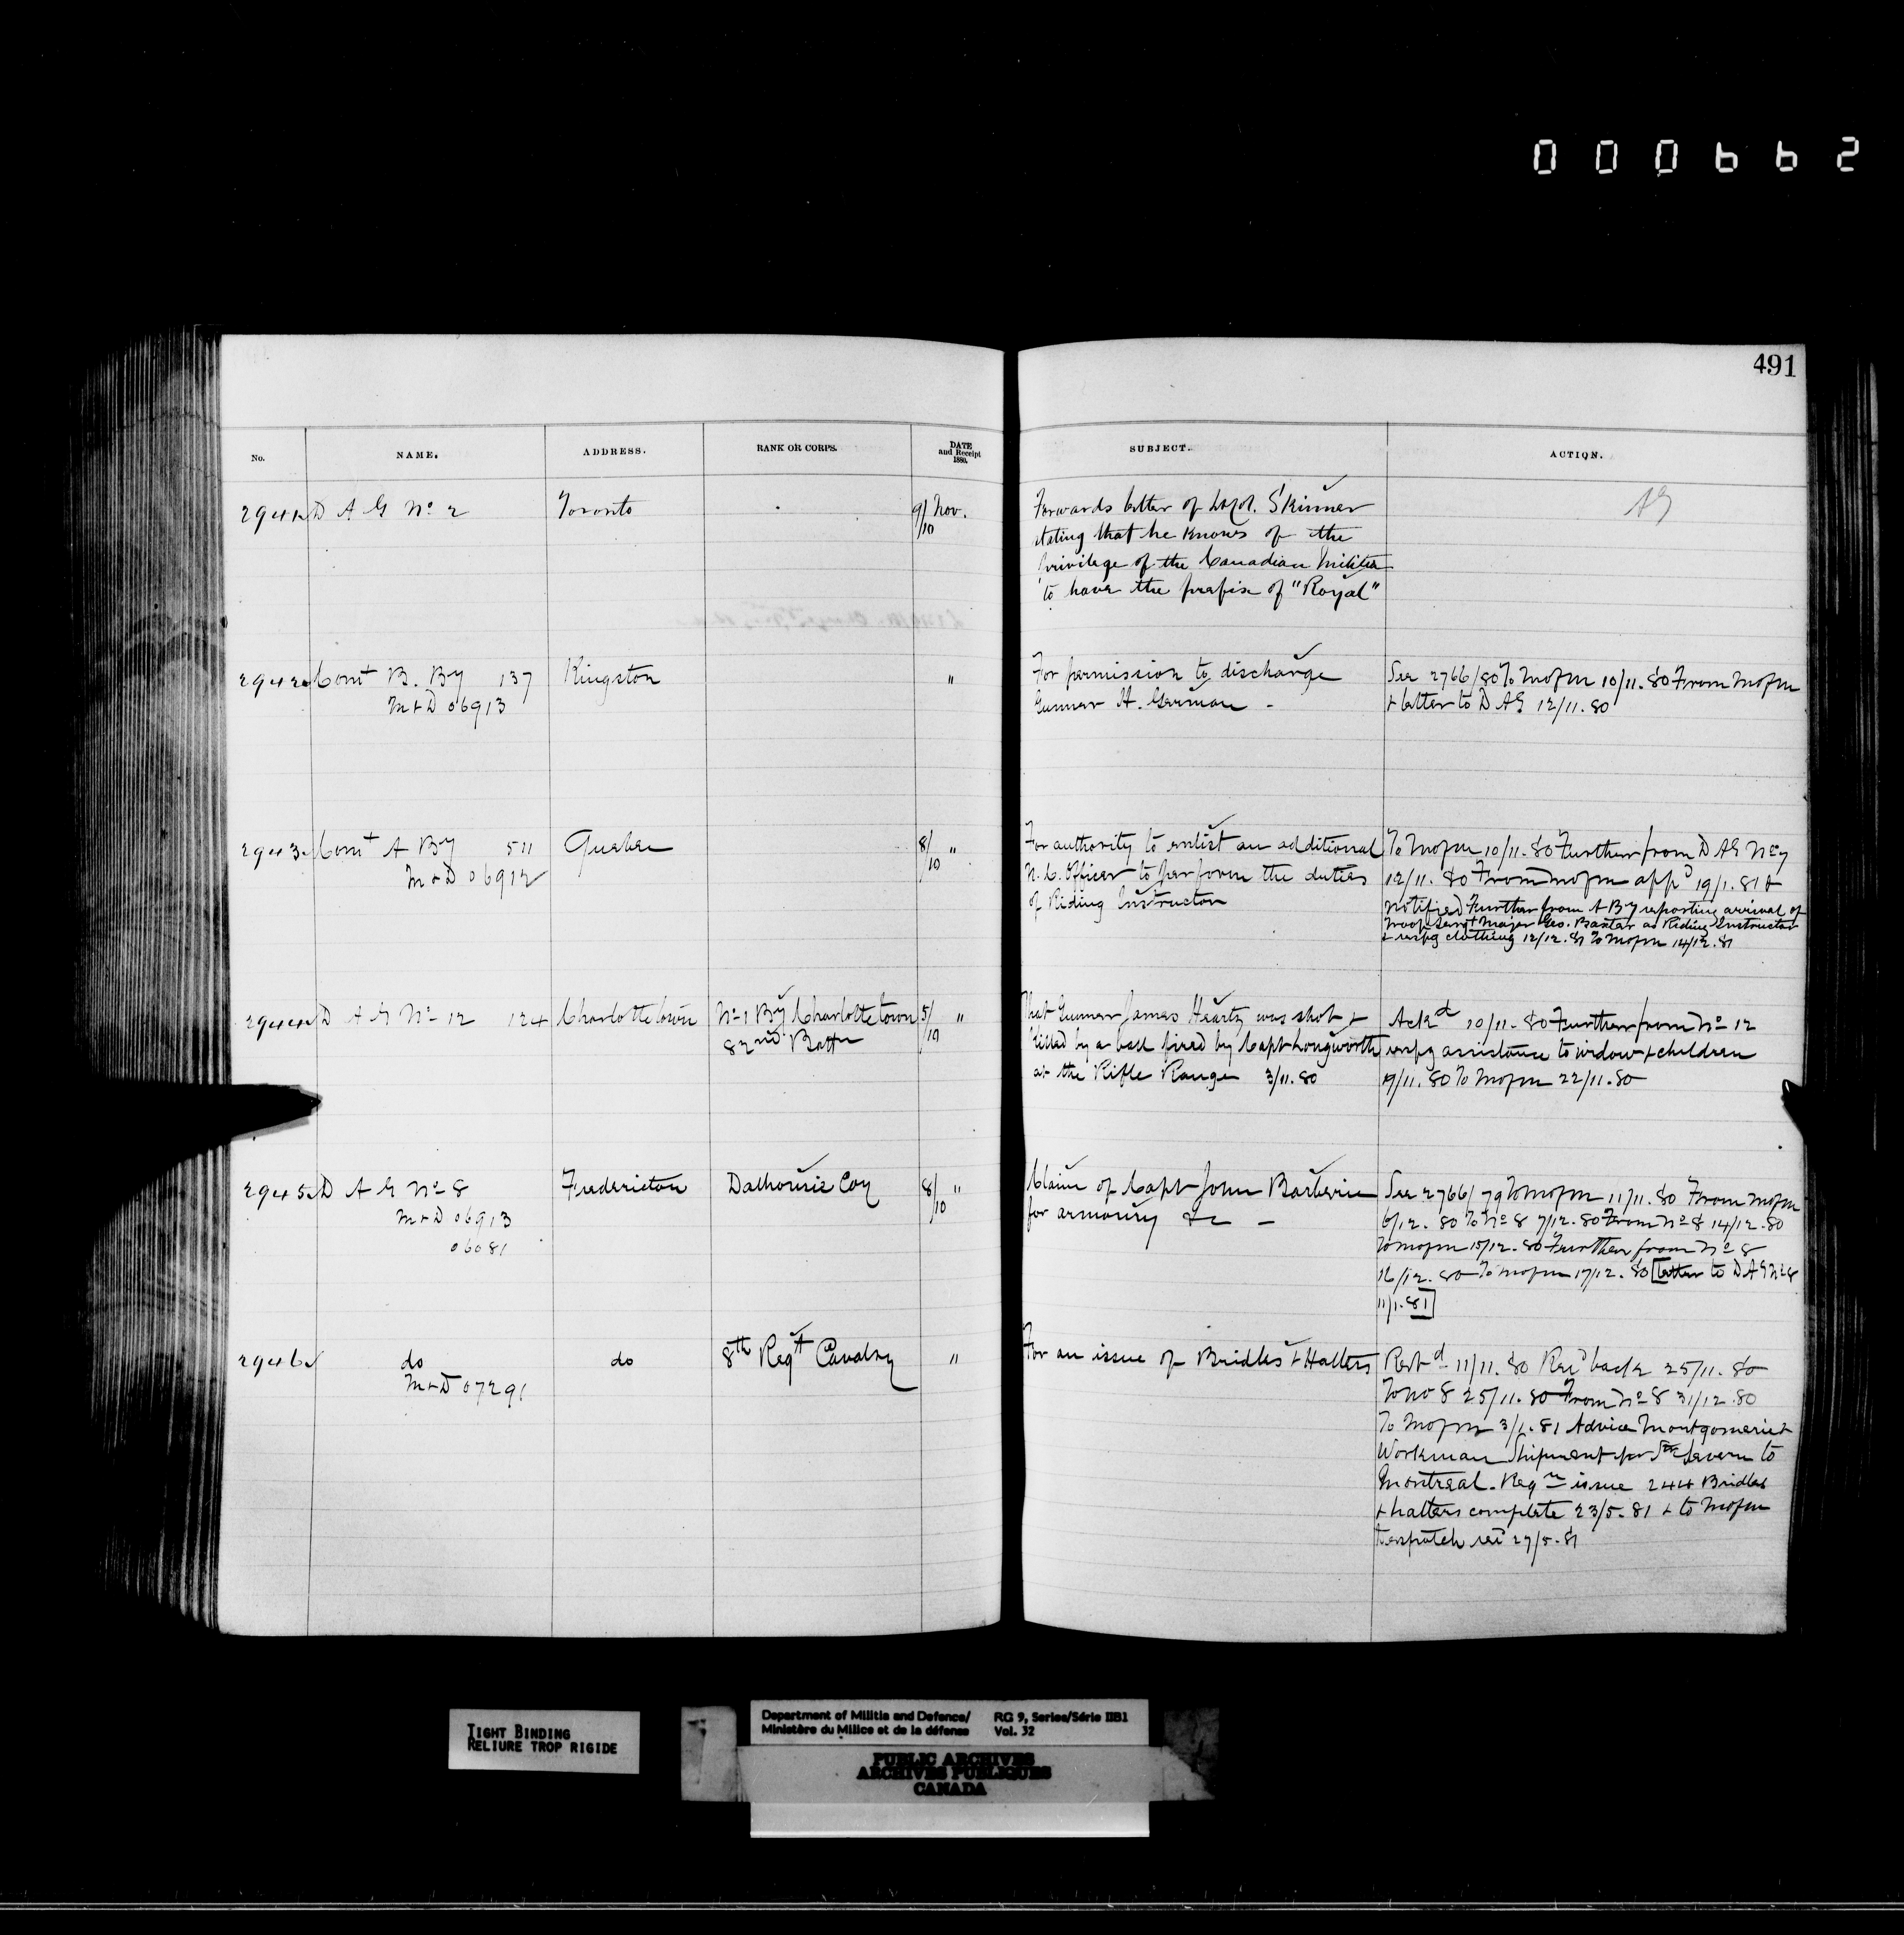 000662
491
No. NAME. ADDRESS. RANK OR CORPS. DATE and Receipt 1880. SUBJECT. ACTION.
2941 D A G No. 2 Toronto 9/10 Nov. Forwards letter of Lt Col. Skinner AG
stating that he knows of the
privilege of the Canadian Militia
to have the prefix of "Royal"
2942 Comt B. By 137 Kingston " For permission to discharge See 2766/80 To Mofm 10/11.80 From Mofm
M+D 06913 Gunner H. German - + letter to D A G 12/11.80
2943 Comt A By 511 Quebec 8/10 " For authority to enlist an additional To Mofm 10/11.80 Further from D A G No 7
M+D 06912 N. C. Officer to perform the duties 12/11.80 From Mofm appd 19/1.81 +
of Riding Instructor notified Further from A By reporting arrival of
Troop Sergt Major Geo. Baxter as Riding Instructor
+ respg clothing 12/12.81 To Mofm 14/12.81
2944 D A G No 12 124 Charlottetown No 1 By Charlottetown 5/10 " That Gunner James Heartz was shot + Ackd 10/11.80 Further from No 12
82nd Battn killed by a ball fired by Capt Longworth respg assistance to widow + children
at the Rifle Range 3/11.80 19/11.80 To Mofm 22/11.80
2945 D A G No 8 Fredericton Dalhousie Coy 8/10 " Claim of Capt John Barberie See 2766/79 To Mofm 11/11.80 From Mofm
M+D 06913 for armoury &c - 6/12.80 To No 8 7/12.80 From No 8 14/12.80
06081 To Mofm 15/12.80 Further from No 8
16/12.80 To Mofm 17/12.80 [letter to D A G No 8
11/1.81]
2946 do do 8th Regt Cavalry " For an issue of Bridles + Halters Retd 11/11.80 Recd back 25/11.80
M+D 07291 To No 8 25/11.80 From No 8 31/12.80
To Mofm 3/1.81 Advice Montgomerie +
Workman Shipment per SS Severn to
Montreal. Reqn issue 244 Bridles
+ halters complete 23/5.81 + to Mofm
despatch recd 27/5.81
TIGHT BINDING
RELIURE TROP RIGIDE
Department of Militia and Defence/ RG 9, Series/Série IIB1
Ministère du Milice et de la défense Vol. 32
PUBLIC ARCHIVES
ARCHIVES PUBLIQUES
CANADA